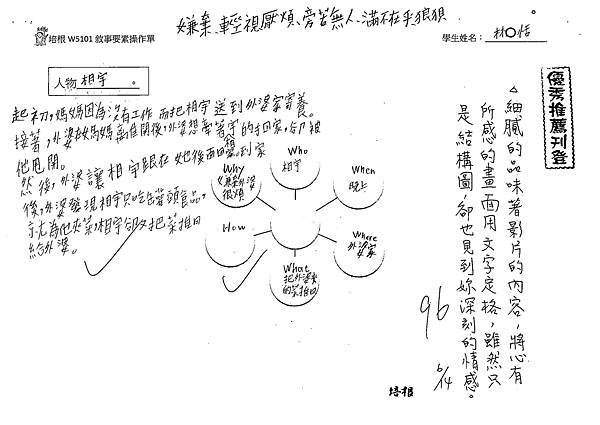 嫌棄、輕視厭煩、旁若無人、滿不在乎狼狽。
培根 W5101 敘事要素操作單
學生姓名：林○恬
人物 相宇 。
起初，媽媽因為沒有工作而把相宇送到外婆家寄養。
接著，外婆在媽媽離開後，外婆想牽著宇的手回家，卻被
他甩開。
然後，外婆讓相宇跟在她後面
到家
後，外婆發現相宇只吃罐頭食品，
就為他夾菜，相宇卻又把菜推回
給外婆。
Who
相宇
When
晚上
Where
外婆家
What
把外婆夾
的菜推回
How
Why
嫌棄外婆
很煩
優秀推薦刊登
△細膩的品味著影片的內容，將心有
所感的畫面用文字定格，雖然只
是結構圖，卻也見到妳深刻的情感。
96
6/14
培根